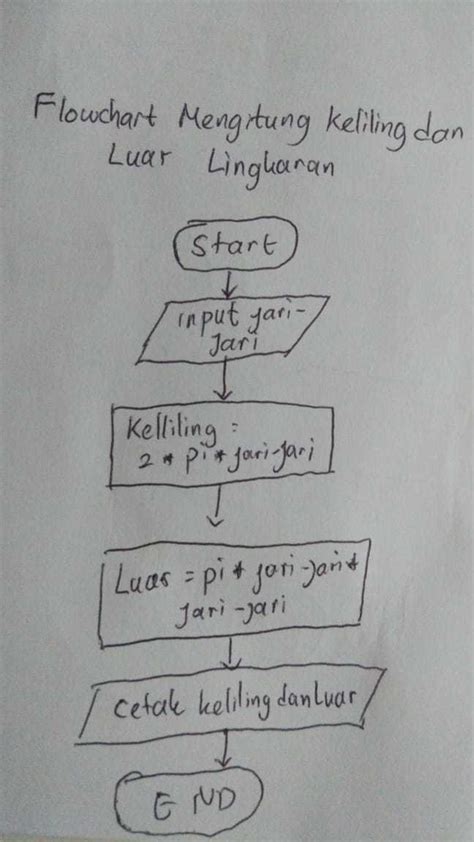 Flowchart Mengitung Keliling dan
Luar Lingkaran
Start
input jari-
Jari
Kelliling =
2 * pi * jari-jari
Luas = pi * jari-jari *
jari-jari
cetak keliling dan Luar
END